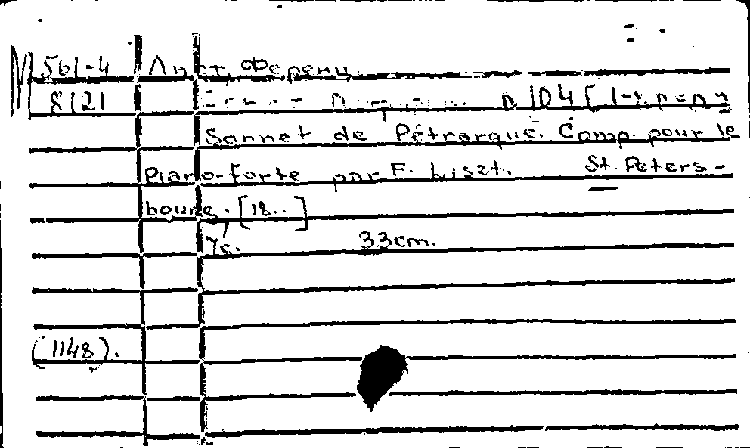 М 561-4 Лист, Ференц
8121 104 [1-я
Sonnet de Pétrarque. Comp. pour le
Piano-forte par F. Liszt. St. Peters-
bourg. [18..]
7с. 33cm.
(1148).